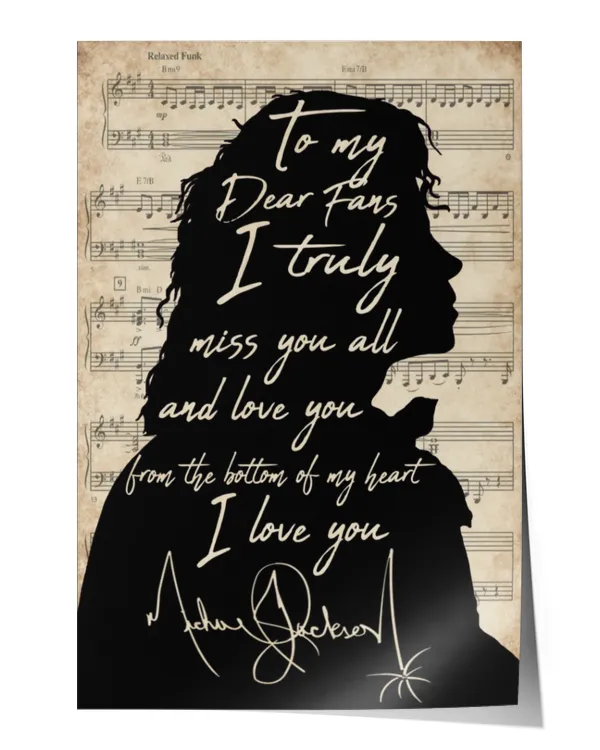 Relaxed Funk
Bmi9 Emi7/B
mp
To my
Dear Fans
E7/B
I truly
9
Bmi D
miss you all
ff
and love you
from the bottom of my heart
I love you
Michael Jackson